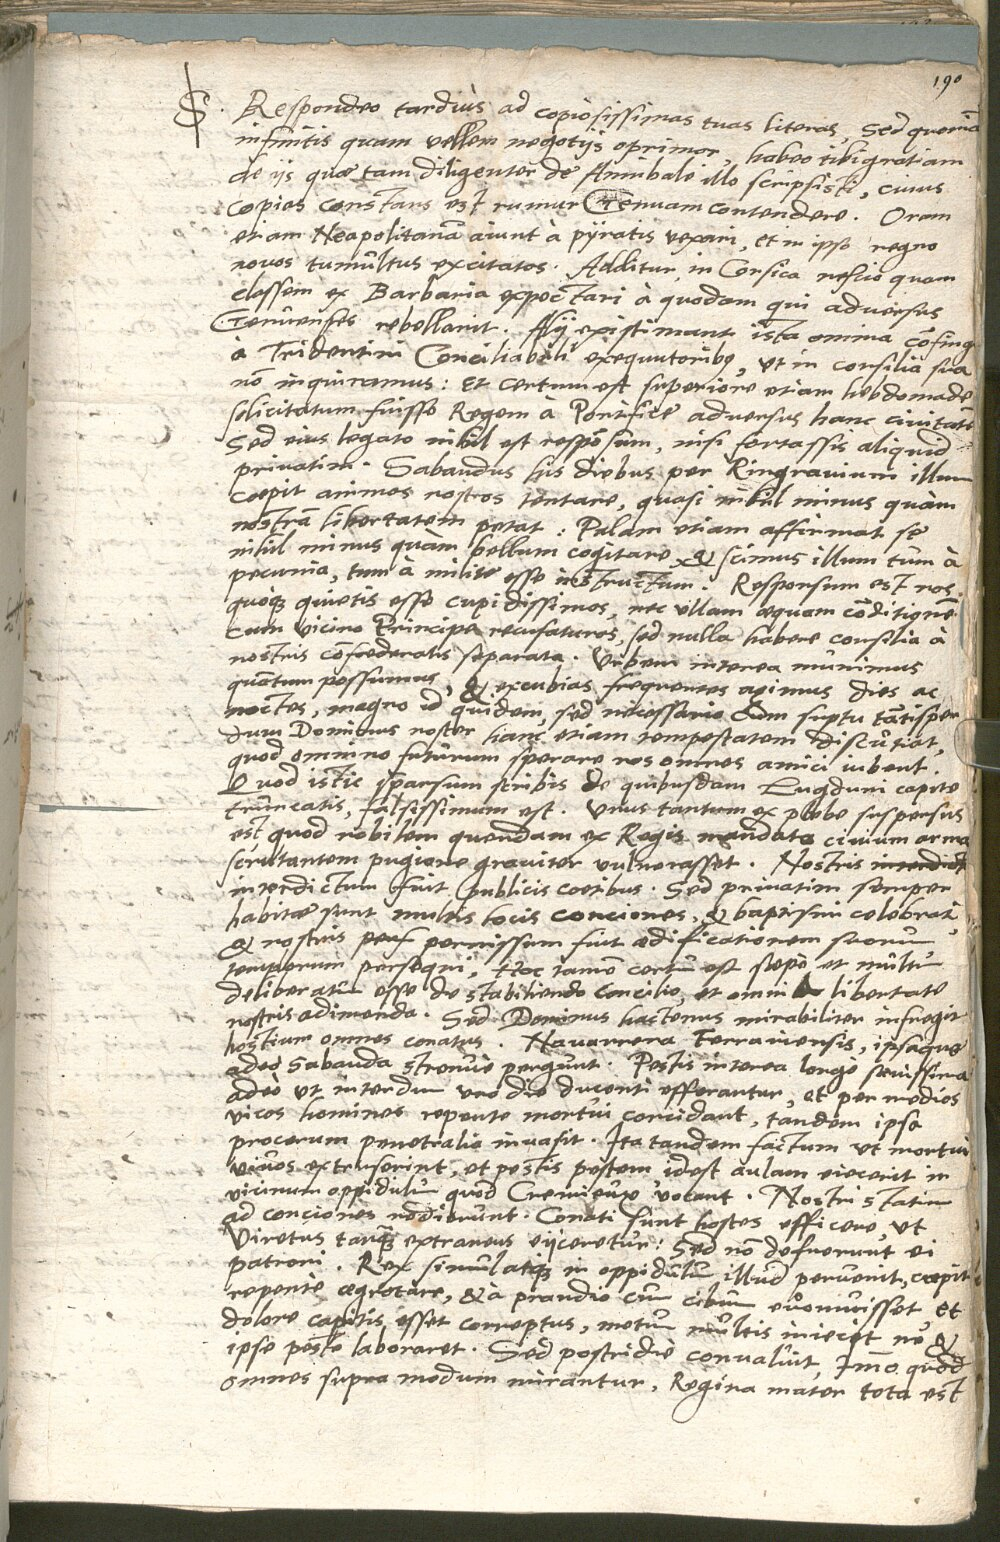 190
S. Respondeo tardiùs ad copiosissimas tuas literas, Sed quoniã
infinitis quam vellem negotijs oprimor, habeo tibi gratiam
de ijs quæ tam diligenter de Annibale illo scripsisti, cuius
copias constans est rumur Genuam contendere. Oram
etiam Neapolitanã aiunt à pyratis vexari, et in ipso regno
novos tumultus excitatos. Additur, in Corsica nescio quam
classem ex Barbaria expectari à quodam qui adversus
Genuenses rebellarit. Alij existimant ista omnia cõfingi
à Tridentini Conciliabuli exequutoribꝰ, ut in consilia sua
nõ inquiramus: Et certum est superiore etiam hebdomade
solicitatum fuisse Regem à Pontifice adversus hanc civitatẽ
Sed eius legato nihil est respõsum, nisi fortassis aliquid
privatim. Sabaudus his diebus per Ringravium illum
cœpit animos nostros tentare, quasi nihil minus quàm
nostrã libertatem petat: Palam etiam affirmat se
nihil minus quàm bellum cogitare, & scimus illum tum à
pecunia, tum à milite esse instructum. Responsum est nos
quoqꝫ quietis esse cupidissimos, nec ullam æquam cõditionẽ
cum vicino Principe recusaturos, sed nulla habere consilia à
nostris cõfœderatis separata. Urbem interea munimus
quãtum possumus, & excubias frequentes agimus dies ac
noctes, magno id quidem, sed necessario cum suptu tãtisper
dum Dominus noster hanc etiam tempestatem discutiat,
quod omnino futurum sperare nos omnes amici iubent.
Quod istic sparsum scribis de quibusdam Lugduni capite
truncatis, falsissimum est. Unus tantum ex plebe suspensus
est quod nobilem quendam ex Regis mandato civium arma
scrutantem pugione graviter vulnerasset. Nostris interdict
interdictum fuit publicis cœtibus. Sed privatim semper
habitæ sunt multis locis conciones, & baptismi celebrati,
& nostris permissum fuit ædificationem suorũ
templorum persequi, Hoc tamẽ certũ est sæpe et multũ
deliberatũ esse de stabiliendo concilio, et omni libertate
nostris adimenda. Sed Dominus hactenus mirabiliter infregit
hostium omnes conatus. Navarrena Ferrariensis, ipsaque
adeo Sabauda strenuè pergunt. Pestis interea longe sævissima
adeò ut interdum uno die ducenti efferantur, et per medios
vicos homines repente mortui concidant, tandem ipsa
procerum penetralia invasit. Ita tandem factum ut mortui
vivos extruserint, et pestis pestem idest aulam eiecerit in
vicinum oppidulũ quod Cremieux vocant. Nostri statim
ad conciones redierunt. Conati sunt hostes efficere, ut
Viretus tanqꝫ extraneus eijceretur: Sed nõ defuerunt ei
patroni. Rex simulatqꝫ in oppidulũ illud pervenit, cœpit
repente ægrotare, & à prandio cũ cibum evomuisset et
dolore capitis esset correptus, metum multis iniecit ne &
ipse peste laboraret. Sed postridie convaluit, Imò quod
omnes supra modum mirantur, Regina mater tota est